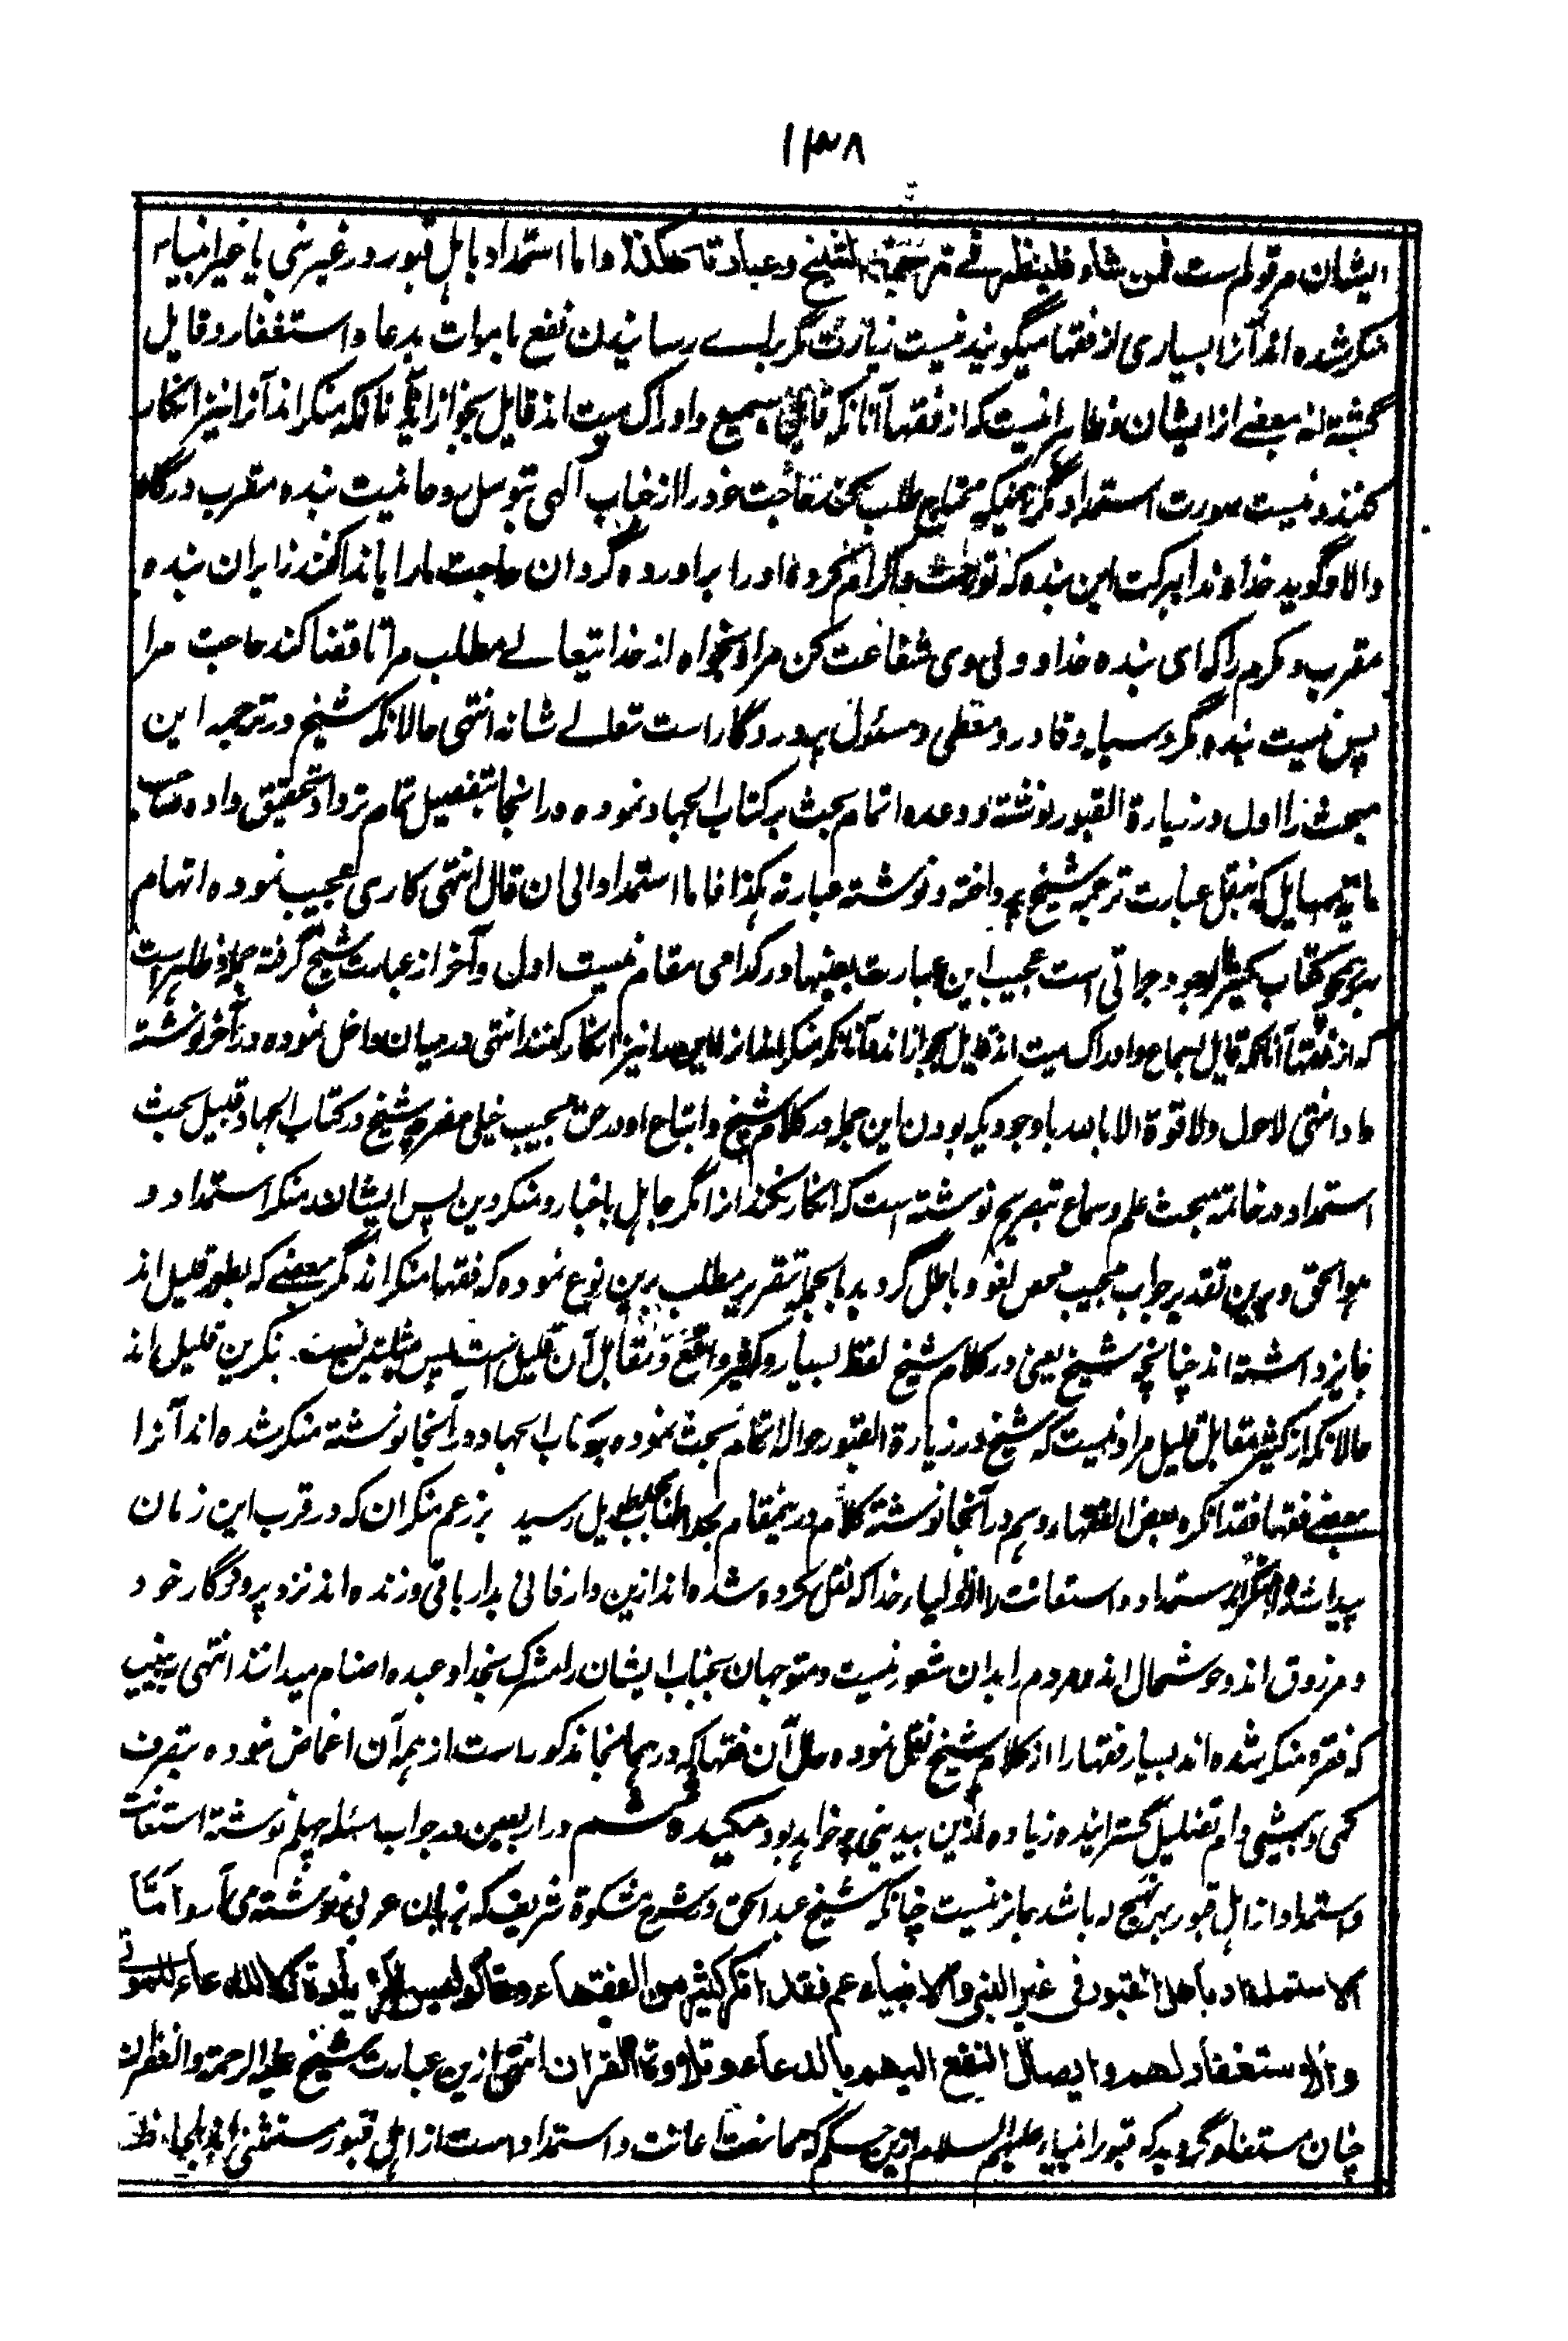 ۱۳۸
ایشان مرقوم است فمن شاء فلینظر فی ترجمة الشیخ وعبارته هکذا واما استمداد باهل قبور در غیر نبی یا غیر انبیاء
منکر شده اند آنرا بسیاری از فقها میگویند نیست زیارت مگر برای رسانیدن نفع باموات بدعا واستغفار وقایل
گشته اند بعضی از ایشان وظاهر انیست که از فقها آنانکه قایل سمیع وادراک میت اند قایل بجواز اند آنانکه منکر اند آنرا نیز انکار
کنند ونیست صورت استمداد مگر همینکه محتاج طلب کند حاجت خود را از جناب الهی بتوسل روحانیت بنده مقرب درگاه
والا وگوید خداوندا ببرکت این بنده که تو رحمت واکرام کرده اورا برآورده گردان حاجت مارا یا ندا کند زایران بنده
مقرب ومکرم را که ای بنده خدا وولی وی شفاعت کن مرا وبخواه از خدا تیعالے مطلب مرا تا قضا کند حاجت مرا
پس نیست بنده مگر وسیله وقادر ومعطی ومسئول پروردگار است تعالے شانه انتهی حالانکه شیخ در ترجمه این
مبحث را اول در زیارة القبور نوشته ووعده اتمام بحث بر کتاب الجهاد نموده ودر انجا بتفصیل تمام تر داد تحقیق داده صاحب
مائة مسایل که بنقل عبارت ترجمه شیخ پرداخته ونوشته عبارته هکذا فاما استمداد الی ان قال انتهی کاری عجیب نموده اتهام
بر همچو کتاب کثیر الوجود جراتی است عجیب این عبارت بعینها در کدامی مقام نیست اول وآخر از عبارت شیخ گرفته جمله وظاهر است
که از فقها آنانکه قایل بسماع وادراک میت اند قایل بجواز اند وآنانکه منکر اند این را نیز انکار کنند انتهی در میان داخل نموده در آخر نوشته
ما دانتهی لاحول ولا قوة الا بالله با وجودیکه بودن این جمله در کلام شیخ واتباع او در حق مجیب خیلی مضر چه شیخ در کتاب الجهاد قبیل بحث
استمداد در خاتمه مبحث علم وسماع بتصریح نوشته است که انکار نکند از ان مگر جاهل باخبار ومنکر دین پس ایشان منکر استمداد
هو الحق وبرین تقدیر جواب مجیب محض لغو وباطل گردید بالجمله تقریر مطلب برین نوع نموده که فقها منکر اند مگر بعضے که بطور قلیل اند
جایز داشته اند چنانچه شیخ یعنی در کلام شیخ لفظ بسیار وکثیر واقع ومقابل آن قلیل است پس مثبتین نسبت بمنکرین قلیل اند
حالانکه از کثیر مقابل قلیل مراد نیست که شیخ در زیارة القبور حواله اتمام بحث نموده بر کتاب الجهاد ودر آنجا نوشته منکر شده اند آنرا
بعضے فقها فقد انکره بعض الفقهاء وهم در آنجا نوشته کلام درینمقام بحد اطناب وتطویل رسید بزعم منکران که در قرب این زمان
پیدا شده اند منکر استمداد واستعانت را از اولیاء خدا که نقل کرده شده اند ازین دار فانی بدار باقی وزنده اند نزد پروردگار خود
ومرزوق اند وخوشحال اند ومردم را بدان شعور نیست ومتوجهان بجناب ایشان را مشرک بخدا وعبده اصنام میدانند انتهی
که فقره منکر شده اند بسیار فقها را از کلام شیخ نقل نموده حال آن فقها که در همانجا مذکور است از همه آن اغماض نموده بتصرف
کمی وبیشی دام تضلیل گسترانیده زیاده ازین بیدینی چه خواهد بود مکیده ششم در اربعین در جواب مسئله چهلم نوشته استعانت
واستمداد از اهل قبور بهر نهج که باشد جایز نیست چنانکه شیخ عبد الحق در شرح مشکوة شریف که بزبان عربی نوشته می آرد امّا
الاستمداد باهل القبور فی غیر النبی والانبیاء عم فقد انکره کثیر من الفقهاء وقالوا لیس الزیارة الا الدعاء للموتی
والاستغفار لهم وایصال النفع الیهم بالدعاء وتلاوة القران انتهی ازین عبارت شیخ علیه الرحمة والغفران
چنان مستفاد گردید که قبور انبیاء علیهم السلام ازین حکم که ممانعت اعانت واستمداد است از اهل قبور مستثنی اند